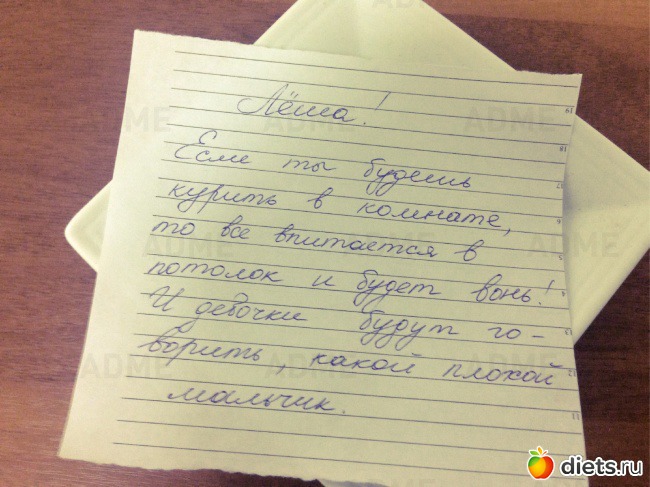 Лёша!
Если ты будешь
курить в комнате,
то все впитается в
потолок и будет вонь!
И девочки будут го-
ворить, какой плохой
мальчик.
ADME
diets.ru